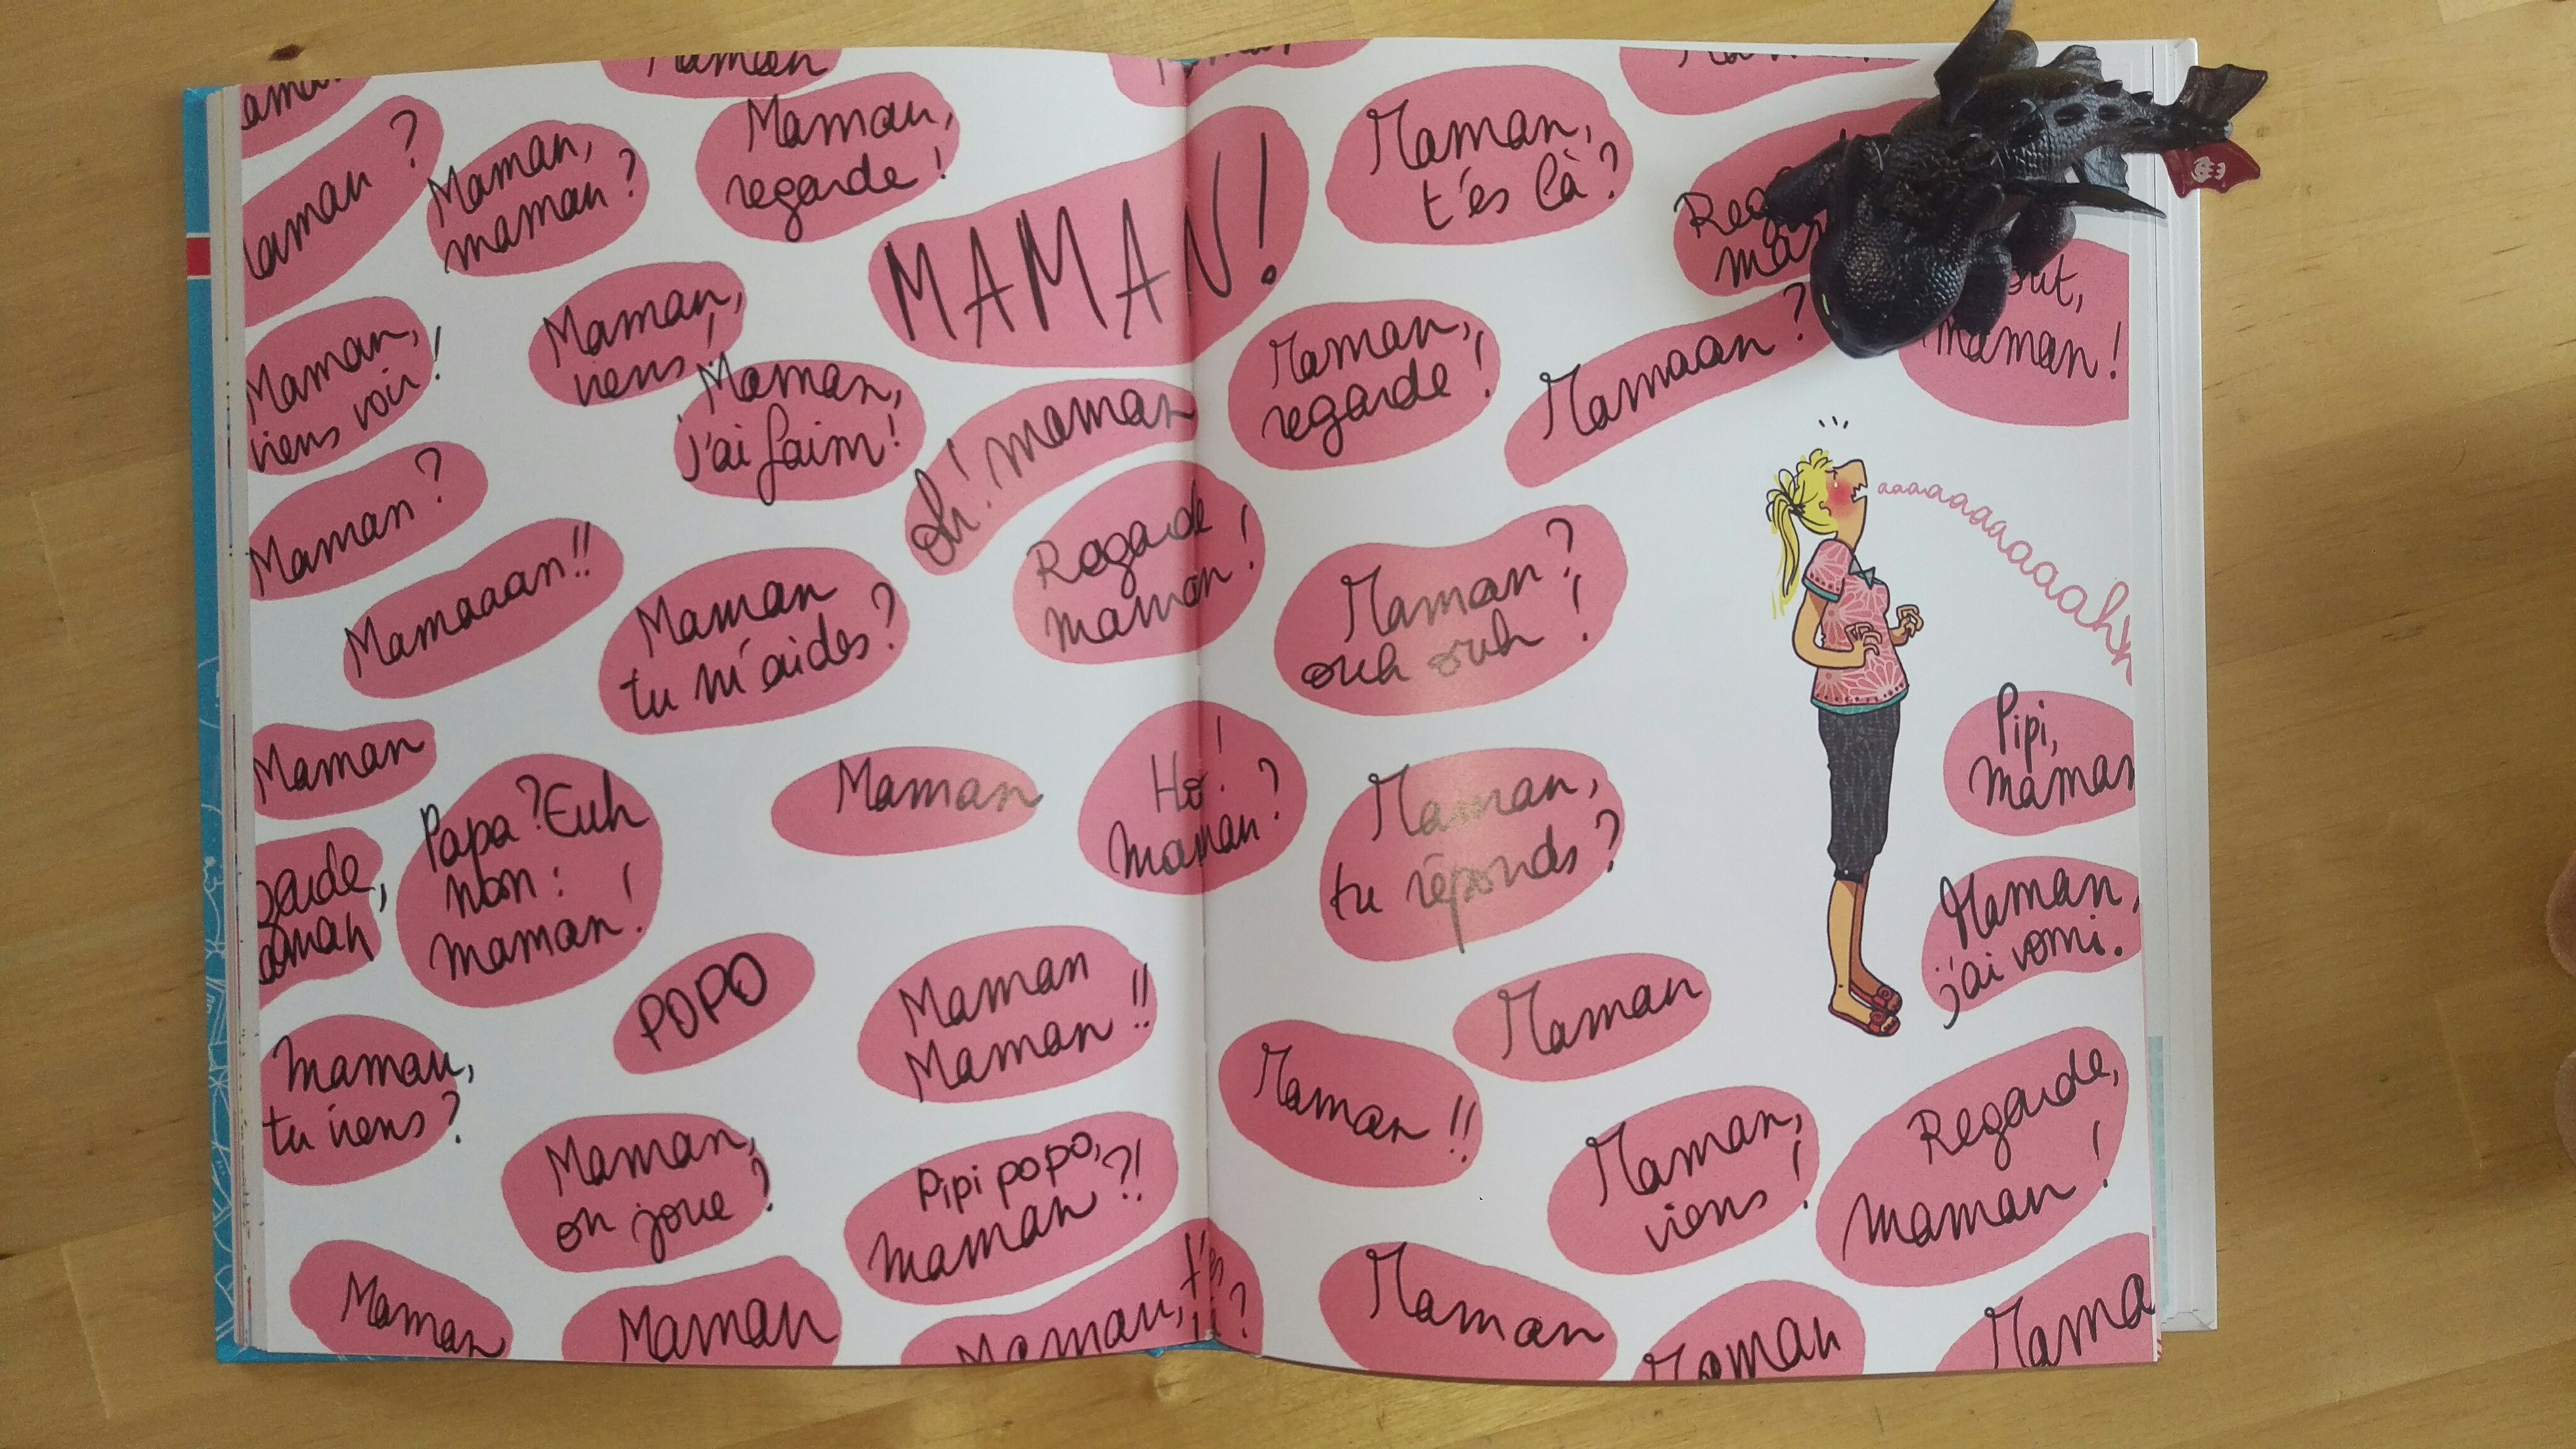 Maman,
regarde !
Maman,
maman ?
MAMAN!
Maman,
viens voir !
Maman,
viens !
Maman,
j'ai faim !
Oh! maman
Maman ?
Mamaaan!!
Maman
tu m'aides ?
Regarde
maman !
Maman
Papa ? Euh
non :
maman !
Maman
Ho !
Maman ?
POPO
Maman
Maman !!
maman,
tu viens ?
Maman,
on joue ?
Pipi popo,
maman ?!
Maman
Maman
Maman, t'es
?
Maman,
t'es là ?
Maman,
regarde !
Mamaan ?
maman !
aaaaaaaaaaaaaaahh
Maman ?
ouh ouh !
Pipi,
maman
Maman,
tu réponds ?
Maman,
j'ai vomi.
Maman
Maman !!
Maman,
viens !
Regarde,
maman !
Maman
Maman